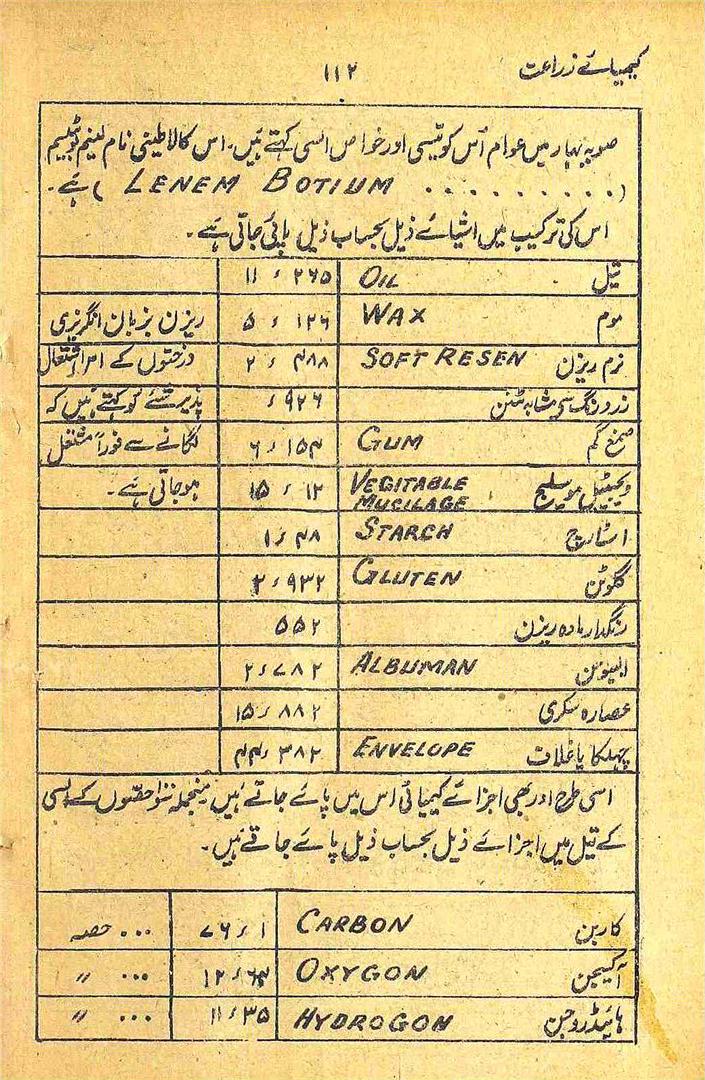 کیمیائے زراعت ۱۱۲
صوبہ بہار میں عوام اُس کو تیسی اور خواص السی کہتے ہیں۔ اس کا لاطینی نام لینم بوٹیم
(LENEM BOTIUM . . . . . . . . .) ہے۔
اس کی ترکیب میں اشیائے ذیل بحساب ذیل پائی جاتی ہے۔
تیل OIL ۱۱ ء ۲۶۵
موم WAX ۵ ء ۱۲۶ ریزن بزبان انگریزی
نرم ریزن SOFT RESEN ۲ ء ۴۸۸ درختوں کے اس اشتعال
زرد رنگ سی مشابہ ٹنن ء ۹۲۶ پذیر شئے کو کہتے ہیں کہ
صمغ گم GUM ۶ ء ۱۵۴ لگانے سے فوراً مشتعل
ویجیٹیبل موسلیج VEGITABLE MUCILAGE ۱۵ ء ۱۲ ہو جاتی ہے۔
اسٹارچ STARCH ۱ ء ۴۸
گلوٹن GLUTEN ۲ ء ۹۳۲
رنگدار مادہ ریزن ۵۵۲
البیومن ALBUMAN ۲ ء ۷۸۲
عصارہ سکری ۱۵ ء ۸۸۲
چھلکا یا غلاف ENVELOPE ۴۴ ء ۳۸۲
اسی طرح اور بھی اجزائے کیمیائی اس میں پائے جاتے ہیں منجملہ سو حصوں کے السی
کے تیل میں اجزائے ذیل بحساب ذیل پائے جاتے ہیں۔
کاربن CARBON ۷۶ ء ۱ ... حصہ
آکسیجن OXYGON ۱۲ ء ۶۴ ... 〃
ہائیڈروجن HYDROGON ۱۱ ء ۳۵ ... 〃